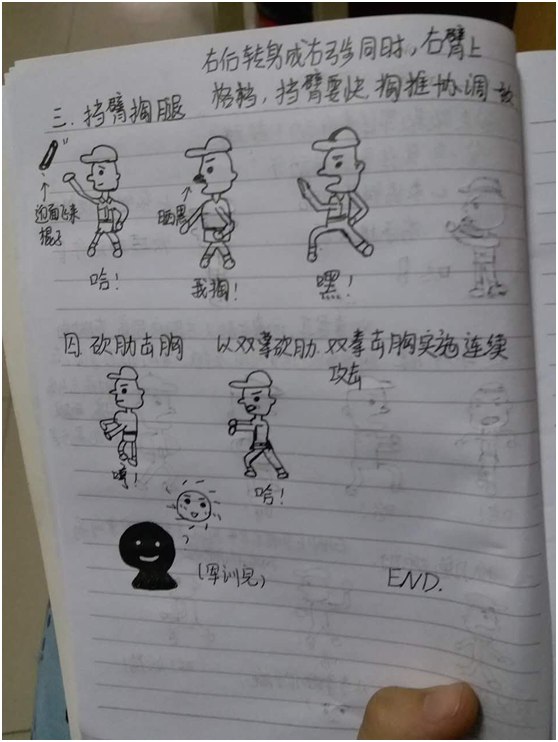 右后转身成右弓步同时,右臂上
三.挡臂掏腿 格挡,挡臂要快,掏推协调一致
迎面飞来
棍子
晒黑
哈!
我掏!
嘿!
四.砍肋击胸 以双掌砍肋.双拳击胸实施连续
攻击
哈!
(军训完)
END.